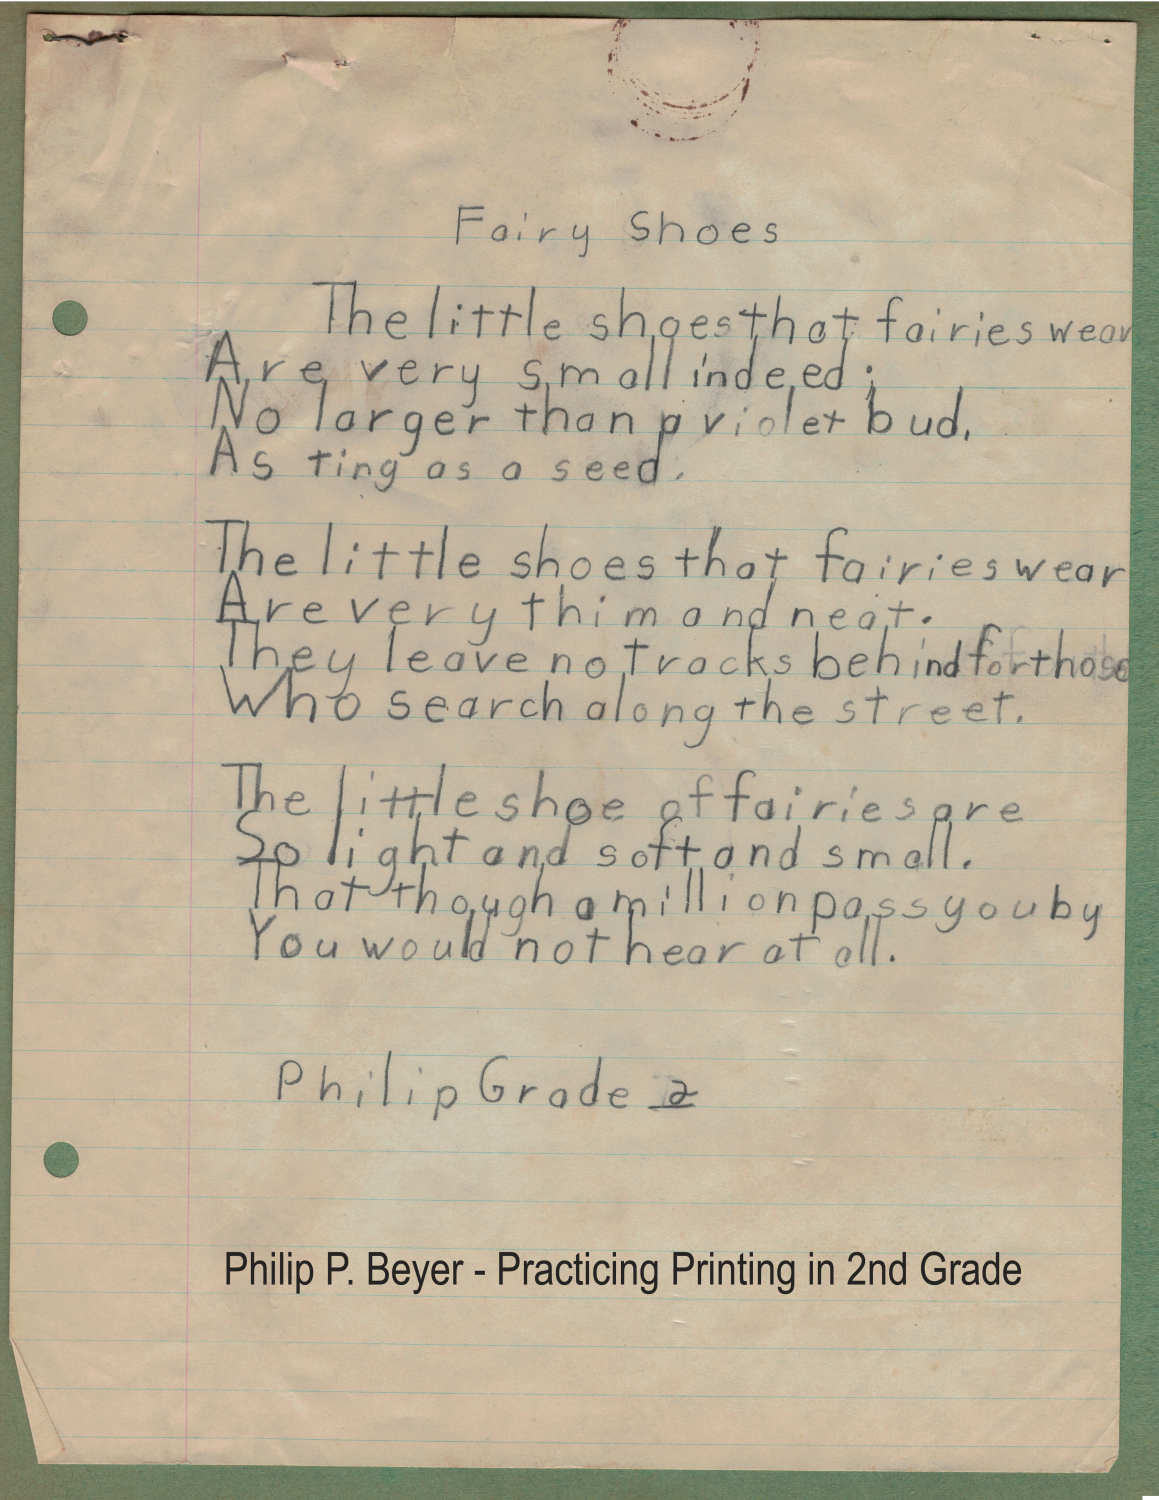 Fairy Shoes
The little shoes that fairies wear
Are very small indeed;
No larger than a violet bud.
As ting as a seed.
The little shoes that fairies wear
Are very thim and neat.
They leave no tracks behind for those
Who search along the street.
The little shoe of fairies are
So light and soft and small.
That though a million pass you by
You would not hear at all.
Philip Grade 2
Philip P. Beyer - Practicing Printing in 2nd Grade